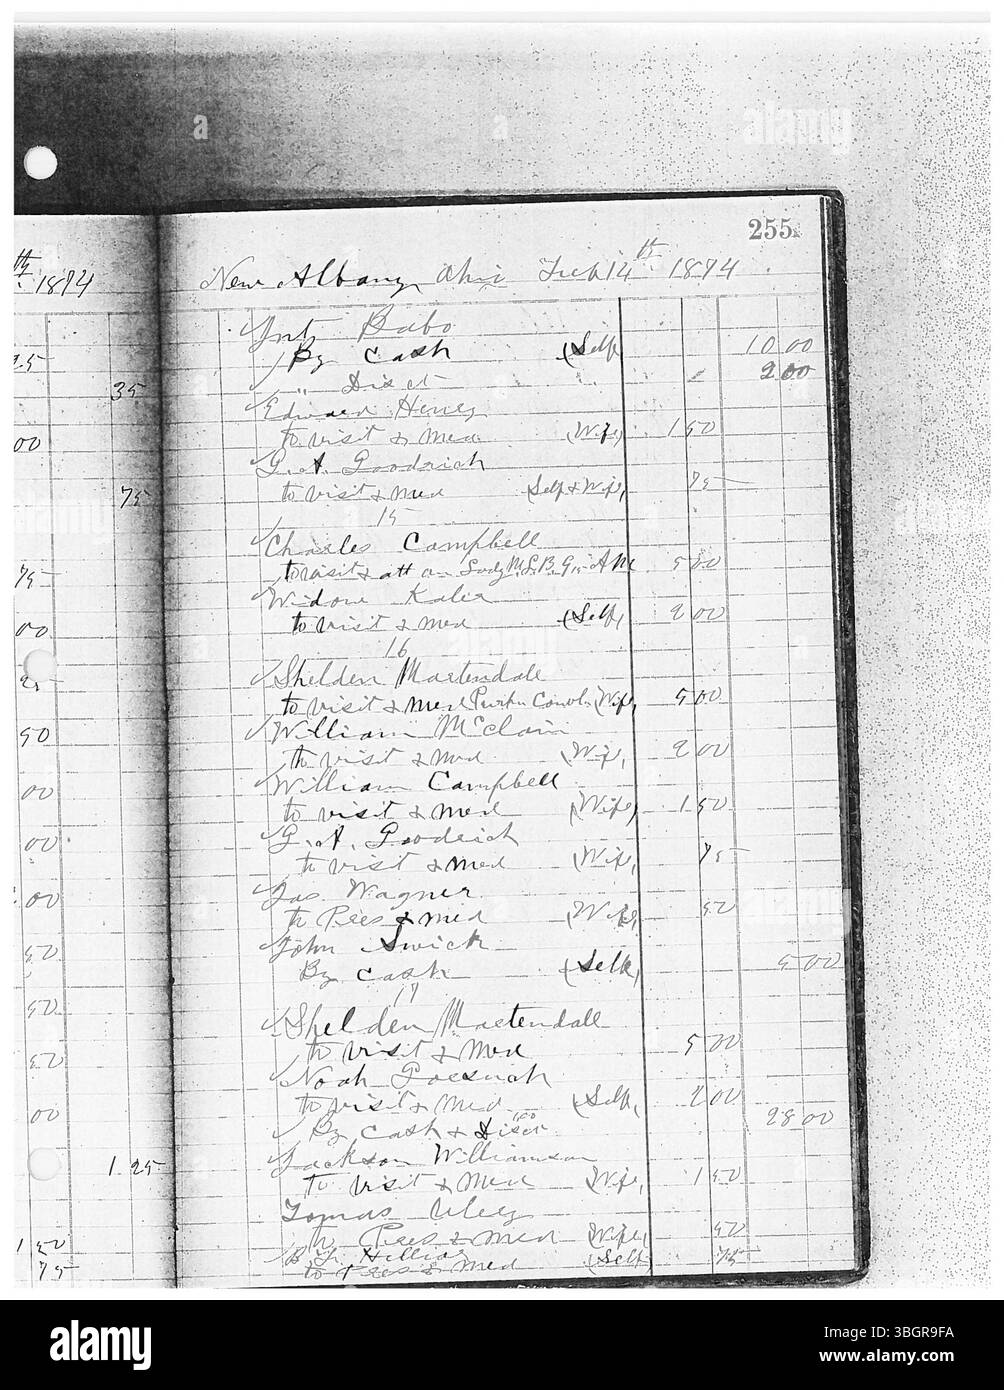 255
1874
New Albany Ohio Feb 14th 1874
Babo
By Cash (Self) 10.00
" Disct " 2.00
25
35
Edward Henry
to visit & med (Wife) 1 50
00
G. A. Goodrich
to visit & med (Self & Wife) 75
75
15
Charles Campbell
to visit & att on 5 00
75
Widow
to visit & med (Self) 2 00
00
16
Shelden Martendale
to visit & med (Wife) 5 00
25
William McClain
to visit & med (Wife) 2 00
50
William Campbell
to visit & med (Wife) 1 50
00
G. A. Goodrich
to visit & med (Wife) 75
00
Jas Wagner
to Pres & med (Wife) 50
00
John Swick
By Cash (Self) 5 00
50
17
Shelden Martendall
to visit & med 5 00
50
Noah
to visit & med (Self) 2 00
50
By Cash & Disct 28 00
00
Jackson Williamson
to visit & med (Wife) 1 50
1.25
Tomas Uley
to Pres & med (Wife) 50
1 50
to Pres & med (Self) 75
75
alamy
Image ID: 3BGR9FA
www.alamy.com